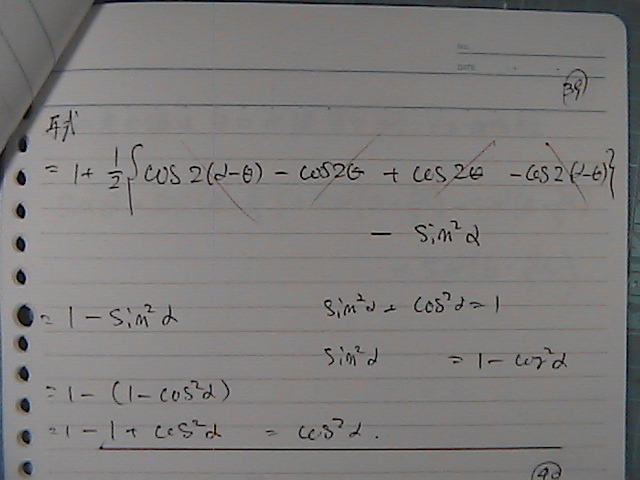 NO.
DATE
39
与式
= 1 + 1/2 { cos 2(α-θ) - cos2θ + cos 2θ - cos 2(α-θ) }
- sin²α
= 1 - sin²α sin²α + cos²α = 1
sin²α = 1 - cos²α
= 1 - (1 - cos²α)
= 1 - 1 + cos²α = cos²α.
40